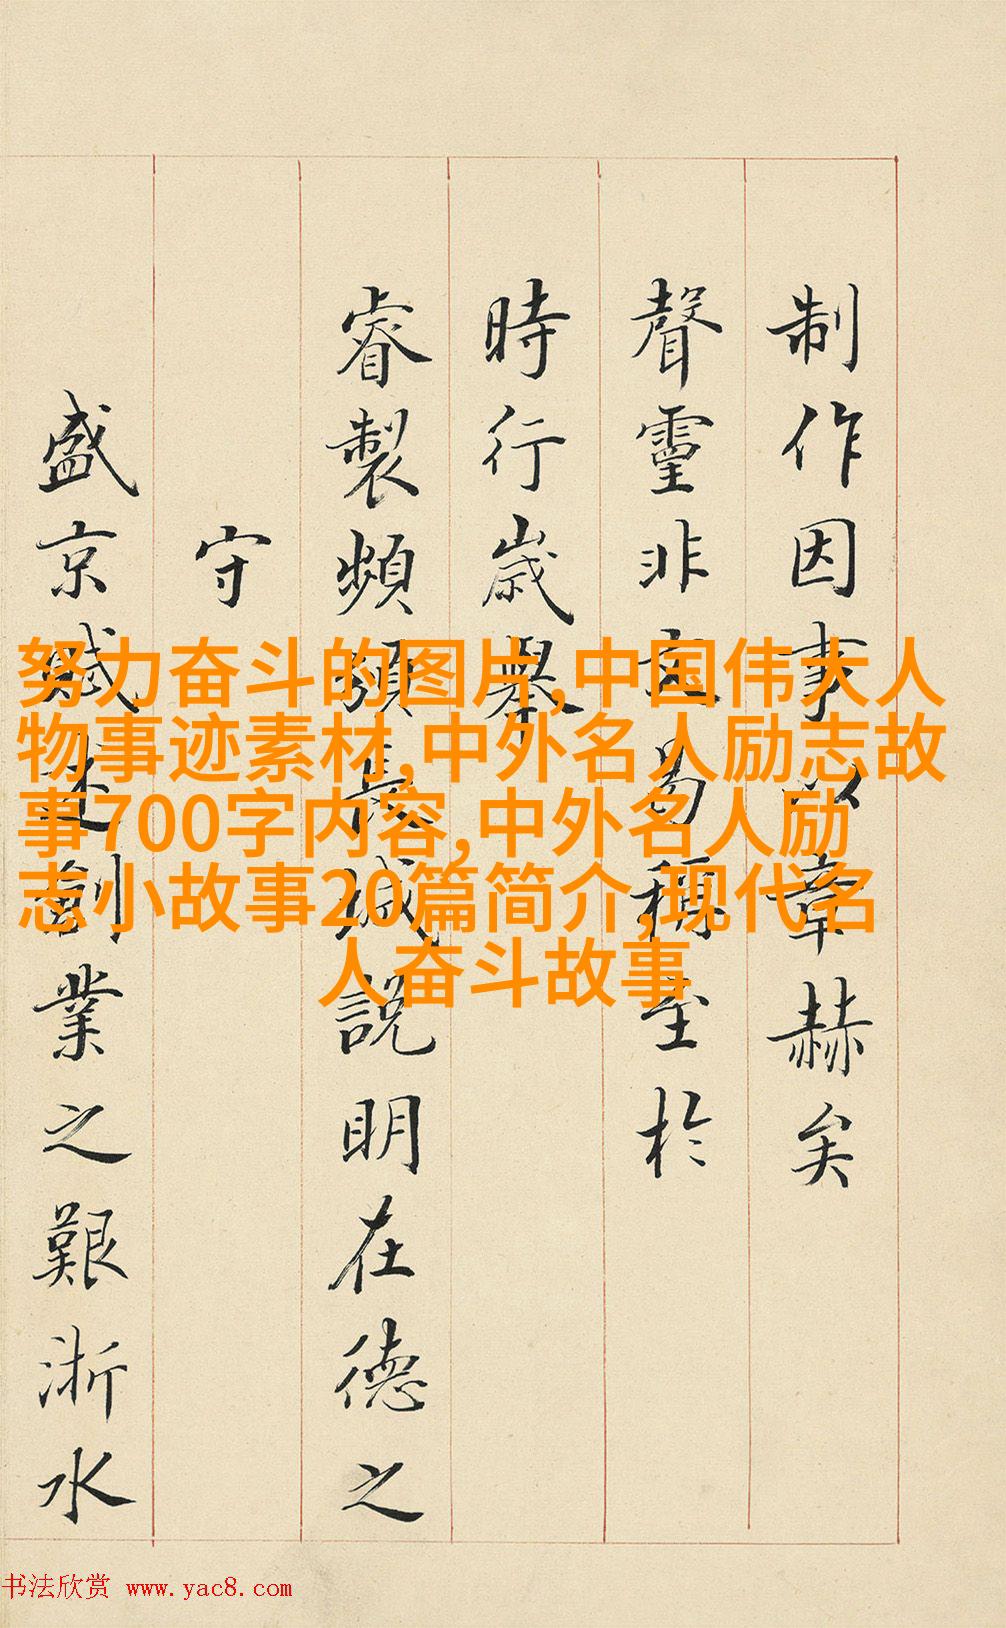 制作因事以章赫矣
聲靈非文曷稱至於
時行歲舉
睿製頻頒長城說明在德之
守
盛京賦述創業之艱浙水
努力奋斗的图片,中国伟大人
物事迹素材,中外名人励志故
事700字内容,中外名人励
志小故事20篇简介,现代名
人奋斗故事
书法欣赏 www.yac8.com